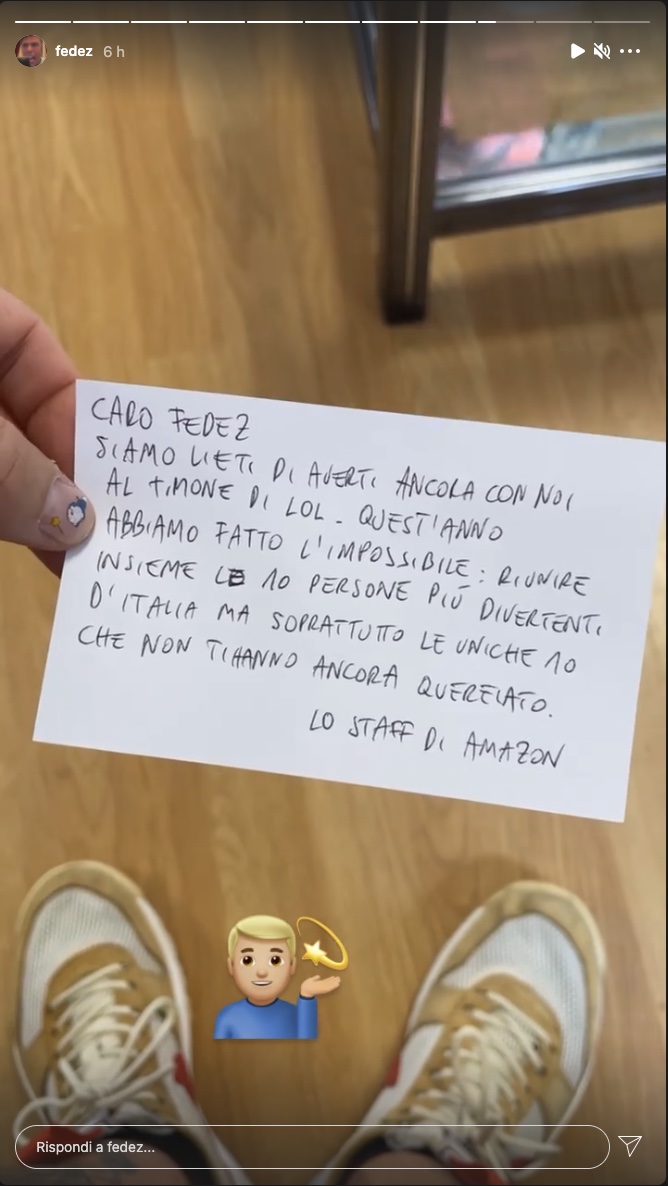 fedez 6 h
CARO FEDEZ
SIAMO LIETI DI AVERTI ANCORA CON NOI
AL TIMONE DI LOL. QUEST'ANNO
ABBIAMO FATTO L'IMPOSSIBILE: RIUNIRE
INSIEME LE 10 PERSONE PIÚ DIVERTENTI
D'ITALIA MA SOPRATTUTTO LE UNICHE 10
CHE NON TI HANNO ANCORA QUERELATO.
LO STAFF DI AMAZON
Rispondi a fedez...